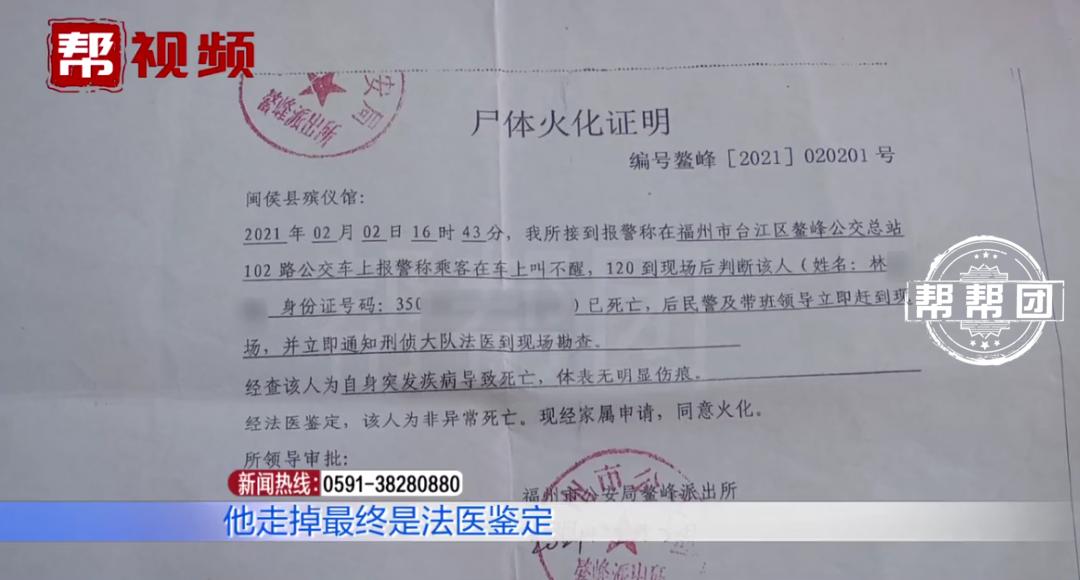 帮视频
安局
尸体火化证明
编号鳌峰［2021］020201号
闽侯县殡仪馆：
2021年02月02日16时43分，我所接到报警称在福州市台江区鳌峰公交总站
102路公交车上报警称乘客在车上叫不醒，120到现场后判断该人（姓名：林
身份证号码：350
）已死亡，后民警及带班领导立即赶到现
帮帮团
场，并立即通知刑侦大队法医到现场勘查。
经查该人为自身突发疾病导致死亡，体表无明显伤痕。
经法医鉴定，该人为非异常死亡。现经家属申请，同意火化。
所领导审批：
新闻热线：0591-38280880
福州市公安局鳌峰派出所
他走掉最终是法医鉴定
鳌峰派出所